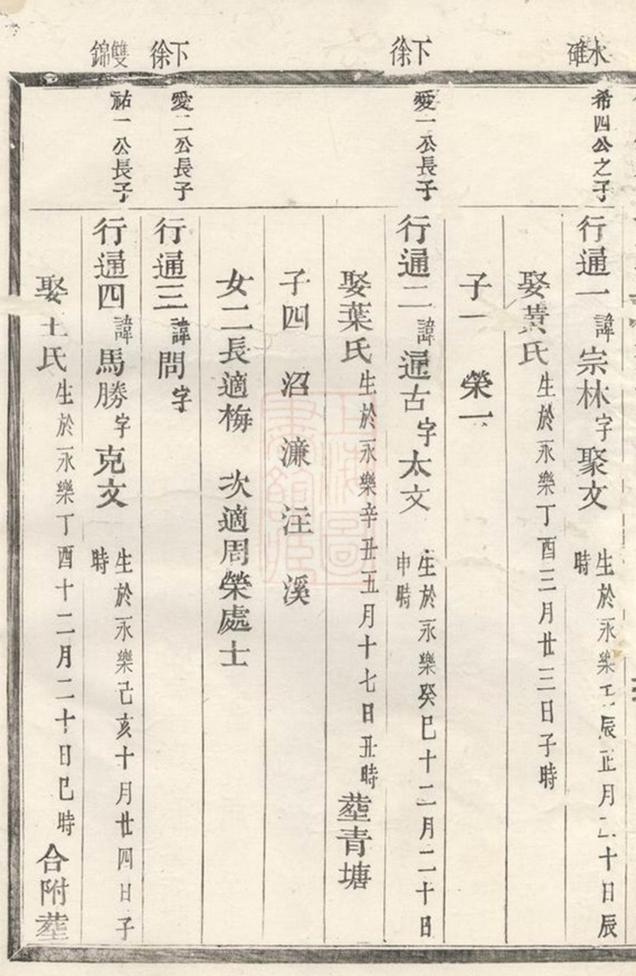 水碓
希四公之子
行通一諱宗林字聚文生於永樂壬辰正月二十日辰時
娶黃氏生於永樂丁酉三月廿三日子時
子一 榮一
下徐
愛一公長子
行通二諱通古字太文生於永樂癸巳十二月二十日申時
娶葉氏生於永樂辛丑五月十七日丑時塟青塘
子四 沼 濂 汪 溪
女二長適梅 次適周榮處士
下徐
愛二公長子
行通三諱問字
雙錦
祐一公長子
行通四諱馬勝字克文生於永樂己亥十月廿四日子時
娶王氏生於永樂丁酉十二月二十日巳時合附塟